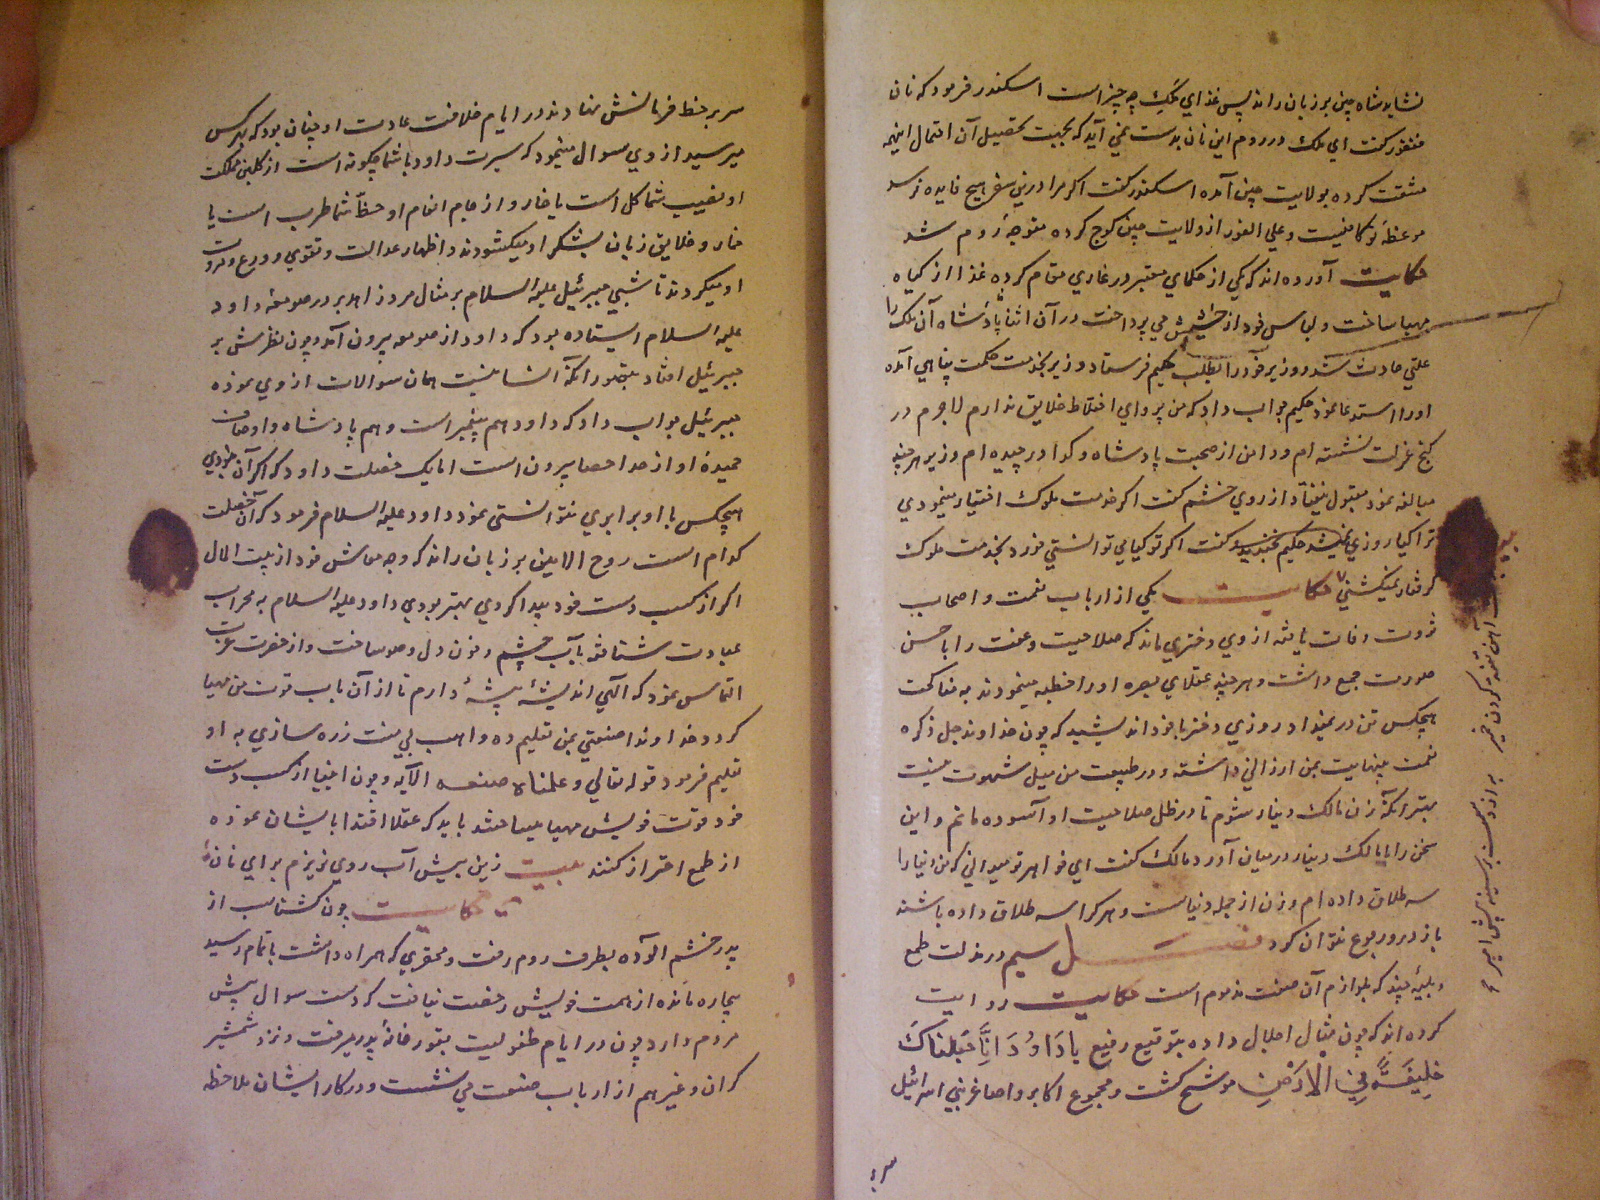 نشاید شاه چین بر زبان راند پس غذای ملک چه چیز است اسکندر فرمود که نان
فغفور گفت ای ملک در روم این نان بدست نمی آید که بجهت تحصیل آن احتمال اینهمه
مشقت کرده بولایت چین آمده اسکندر گفت اگر مرا درین سفر هیچ فایده نرسد
موعظهٔ تو کافیست و علی الفور از ولایت چین کوچ کرده متوجهٔ روم شد
حکایت آورده اند که یکی از حکمای معتبر در غاری مقام کرده غذا از گیاه
مهیا ساخت و لباس خود از حشیش می پرداخت در آن اثنا پادشاه آن ملک را
علتی حادث شد و وزیر خود را بطلب حکیم فرستاد وزیر بخدمت حکمت پناهی آمده
او را استدعا نمود حکیم جواب داد که من پروای اختلاط خلایق ندارم لاجرم در
کنج عزلت نشسته ام و دامن از صحبت پادشاه و گدا درچیده ام وزیر هرچند
مبالغه نمود مقبول نیفتاد از روی خشم گفت اگر خدمت ملوک اختیار مینمودی
ترا گیا روزی نمیشد حکیم بخندید و گفت اگر تو گیا می توانستی خورد بخدمت ملوک
گرفتار نمیگشتی حکایت یکی از ارباب نعمت و اصحاب
ثروت وفات یافته از وی دختری ماند که صلاحیت و عفت را با حسن
صورت جمع داشت و هرچند عقلای بصره او را خطبه مینمودند به مناکحت
هیچکس تن در نمیداد روزی دختر با خود اندیشید که چون خداوند جل ذکره
نعمت بینهایت بمن ارزانی داشته و در طبیعت من میل شهوت نیست
بهتر آنکه زن مالک دینار شوم تا در ظل صلاحیت او آسوده مانم و این
سخن را با مالک دینار در میان آورد مالک گفت ای خواهر تو میدانی که من دنیا را
سه طلاق داده ام و زن از جمله دنیاست و هر کرا سه طلاق داده باشند
باز در او رجوع نتوان کرد فصل سیم در مذلت طمع
و بلیهٔ چند که بلوازم آن صفت مذموم است حکایت روایت
کرده اند که چون مثال اجلال داده بتوقیع رفیع یَا دَاوُدَ اِنَّا جَعَلْنَاکَ
خَلِیفَةً فِی الاَرْضِ موشح گشت و مجموع اکابر و اصاغر بنی اسرائیل
سربر
به از دست بر سینه پیش امیر
سر بر خط فرمانش نهادند در ایام خلافت عادت او چنان بود که بهر کس
میرسید از وی سوال مینمود که سیرت داود با شما چگونه است از گلبن مملکت
او نصیب شما گل است یا خار و از جام انعام او حظّ شما طرب است یا
خمار و خلایق زبان بشکر او میگشودند و اظهار عدالت و تقوی و ورع و مروت
او میکردند تا شبی جبرئیل علیه السلام بر مثال مرد زاهد بر در صومعهٔ داود
علیه السلام ایستاده بود که داود از صومعه بیرون آمد و چون نظرش بر
جبرئیل افتاد بتصور آنکه آشنا نیست همان سوالات از وی نموده
جبرئیل جواب داد که داود هم پیغمبر است و هم پادشاه و اوصاف
حمیدهٔ او از حد احصا بیرون است اما یک خصلت دارد که اگر آن نبودی
هیچکس با او برابری نتوانستی نمود داود علیه السلام فرمود که آن خصلت
کدام است روح الامین بر زبان راند که وجه معاش خود از بیت المال
اگر از کسب دست خود پیدا کردی بهتر بودی داود علیه السلام به محراب
عبادت شتافته بآب چشم و خون دل وضو ساخت و از حضرت عزت
التماس نمود که الهی اندیشهٔ پیشهٔ دارم تا از آن باب قوت من مهیا
گردد خداوندا صنعتی بمن تعلیم ده واهب بی منت زره سازی به او
تعلیم فرمود قوله تعالی و علمناه صنعه الآیه و چون انبیا از کسب دست
خود قوت خویش مهیا میساختند باید که عقلا اقتدا بایشان نموده
از طمع احتراز کنند بیت زین بیش آب روی نریزم برای نان
حکایت چون گشتاسب از
پدر خشم آلوده بطرف روم رفت و محقری که همراه داشت باتمام رسید
بیچاره مانده از همت خویش رخصت نیافت که دست سوال پیش
مردم دارد چون در ایام طفولیت بتور خانهٔ پدر میرفت و نزد شمشیر
گران و غیرهم از ارباب صنعت می نشست و در کار ایشان ملاحظه